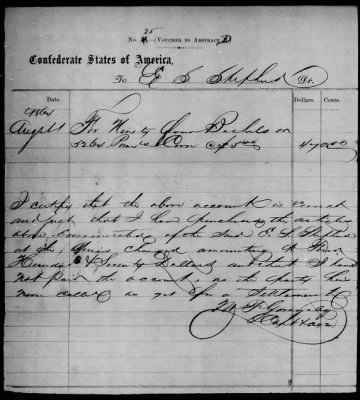 25
No. — (Voucher to Abstract D)
Confederate States of America,
To E S Shepherd Dr.
Date. Dollars. Cents.
1864
Augst 1 For Ninety Four Bushels or
5264 Pounds Corn @ $5.00 470 00
I certify that the above account is correct
and just, that I have purchased the articles
above enumerated of the said E. S. Shepherd
at the prices charged amounting to Four
Hundred & Seventy Dollars and that I have
not paid the account, as the party has
never called as yet for a settlement
Capt
8